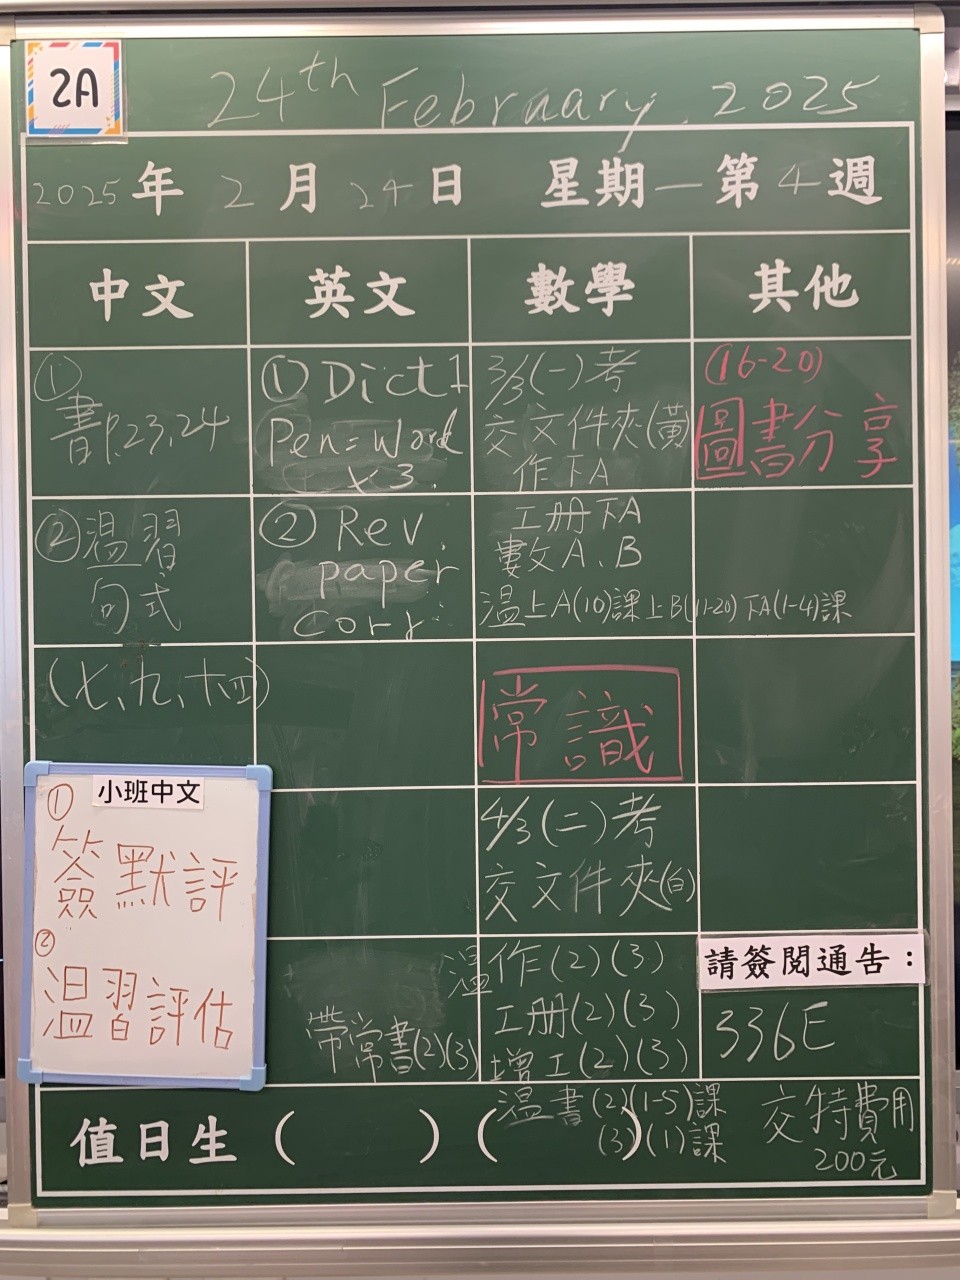 2A
24th February, 2025
2025年2月24日 星期一第4週
中文
英文
數學
其他
①
書P.23,24
②溫習
句式
(七、九、十四)
小班中文
①
簽默評
②
溫習評估
① Dict 1
Pen= word
x3.
② Rev.
paper
corr.
3/3(一)考
交文件夾(黃)
作下A
工冊下A
數文A、B
溫上A(10)課上B(11-20)下A(1-4)課
常識
4/3(二)考
交文件夾(白)
溫作(2)(3)
工冊(2)(3)
增工(2)(3)
溫書(2)(1-5)課
(3)(1)課
帶常書(2)(3)
(16-20)
圖書分享
請簽閱通告：
336E
交特費用
200元
值日生( )( )